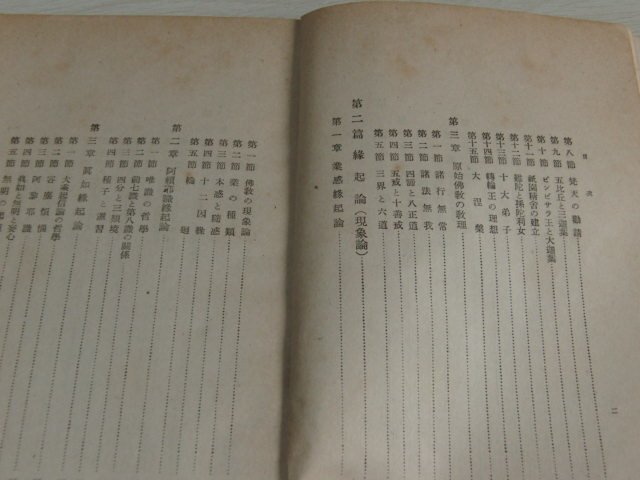 目次
第八節 梵天の勸請
第九節 五比丘と三迦葉
第十節 ビンビサラ王と大迦葉
第十一節 祇園精舍の建立
第十二節 難陀と孫陀利女
第十三節 十大弟子
第十四節 轉輪王の理想
第十五節 大涅槃
第三章 原始佛教の敎理
第一節 諸行無常
第二節 諸法無我
第三節 四諦と八正道
第四節 五戒と十善戒
第五節 三界と六道
第二篇 緣起論(現象論)
第一章 業感緣起論
二
第一節 佛敎の現象論
第二節 業の種類
第三節 本惑と隨惑
第四節 十二因緣
第五節 輪廻
第二章 阿賴耶識緣起論
第一節 唯識の哲學
第二節 前七識と第八識の關係
第三節 四分と三類境
第四節 種子と薰習
第三章 眞如緣起論
第一節 大乘起信論の哲學
第二節 客塵煩惱
第三節 阿黎耶識
第四節 眞如と無明
第五節 無明の